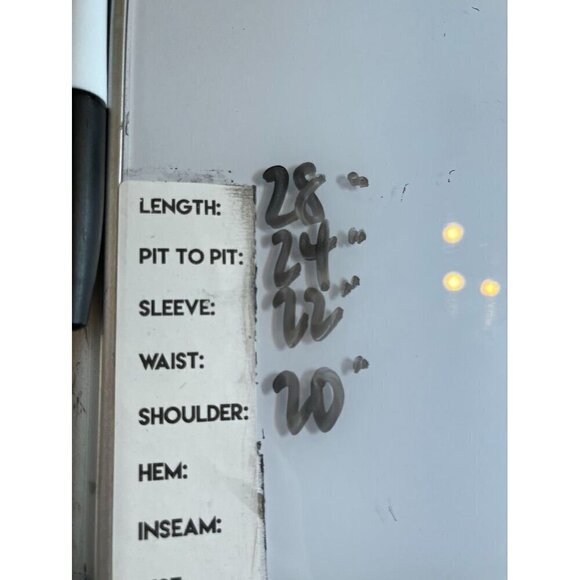 LENGTH: 28"
PIT TO PIT: 24"
SLEEVE: 22"
WAIST:
SHOULDER: 20"
HEM:
INSEAM: